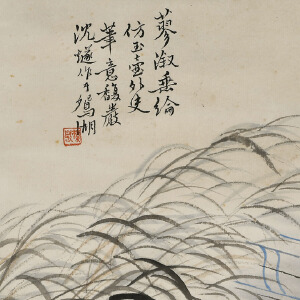 蓼溆垂綸
仿玉壺外史
筆意馥巖
沈燧作于鴛湖